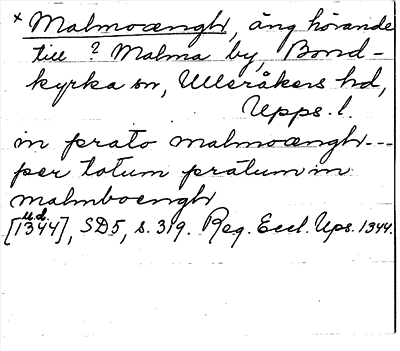 * Malmoængh, äng hörande
till ? Malma by, Bond-
kyrka sn, Ulleråkers hd,
Upps. l.
in prato malmoængh---
per totum pratum in
malmboengh
u.d.
[1344], SD5, s. 319. Reg. Eccl. Ups. 1344.